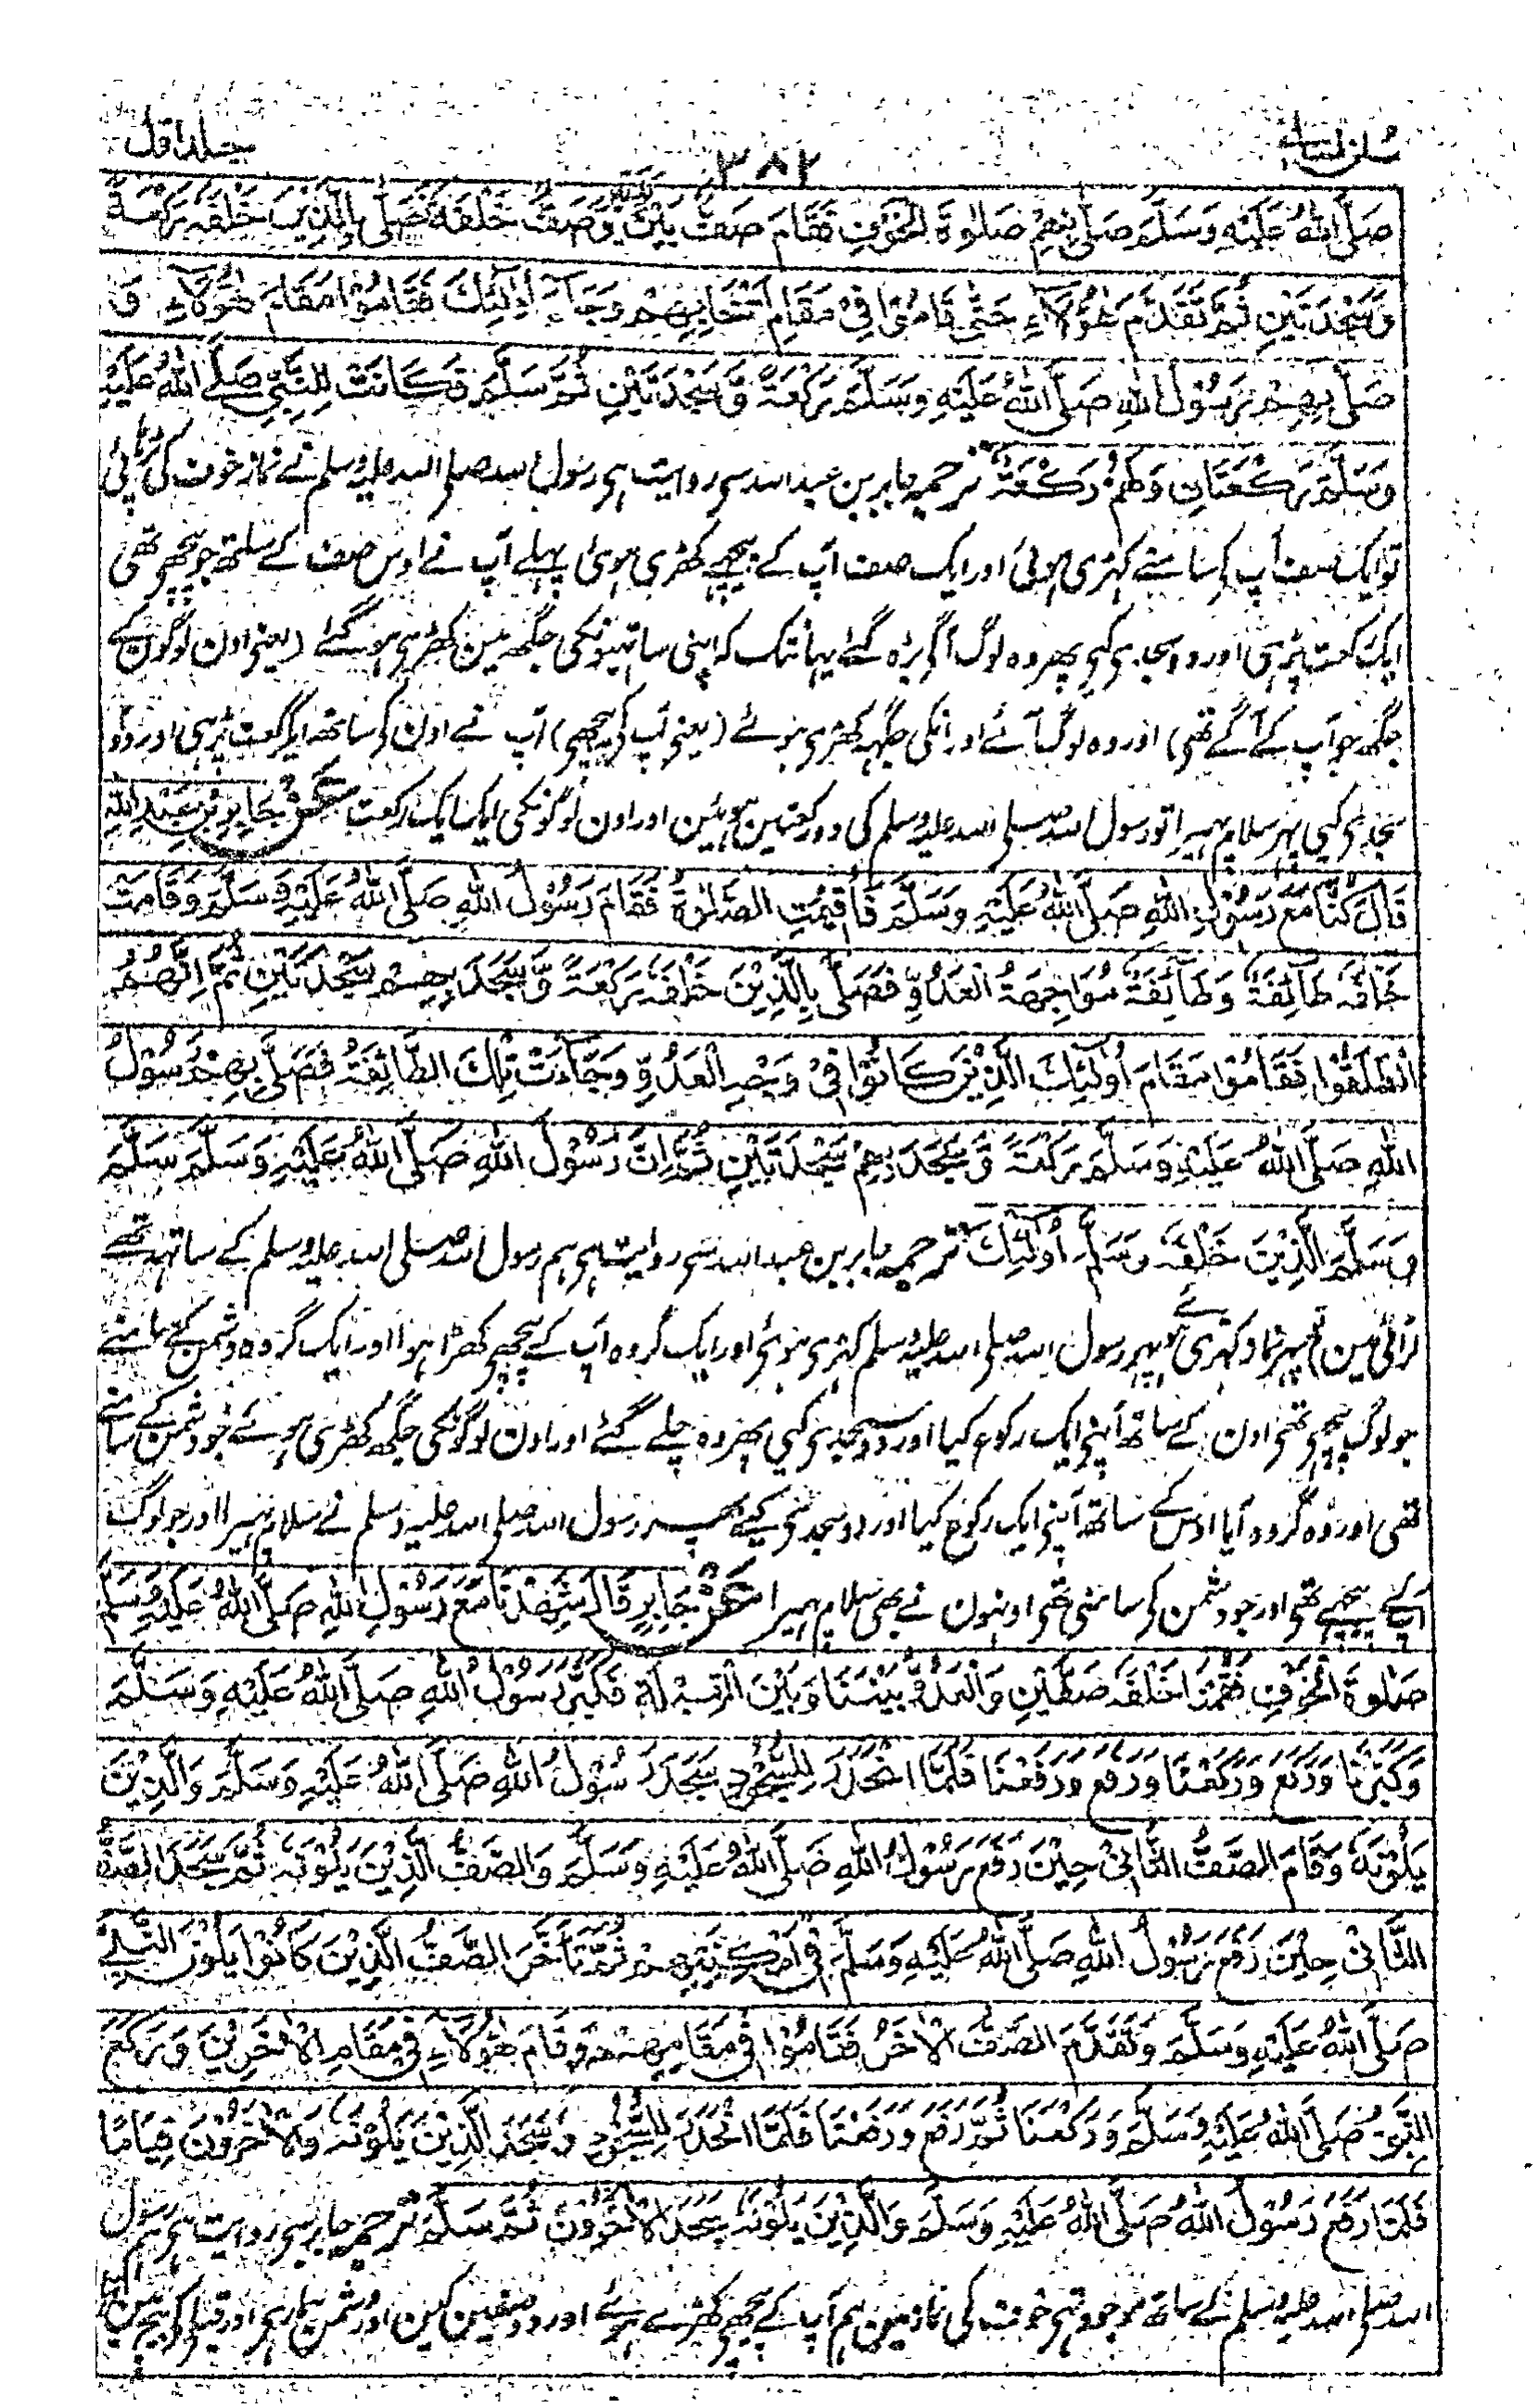 سنن نسائی
۳۸۲
جلد اول
صَلَّى اللّٰهُ عَلَيْهِ وَسَلَّمَ صَلّٰى بِهِمْ صَلٰوةَ الْخَوْفِ فَقَامَ صَفٌّ بَيْنَ يَدَيْهِ وَصَفٌّ خَلْفَهٗ صَلّٰى بِالَّذِيْنَ خَلْفَهٗ رَكْعَةً
وَّسَجْدَتَيْنِ ثُمَّ تَقَدَّمَ هٰؤُلَآءِ حَتّٰى قَامُوْا فِيْ مَقَامِ اَصْحَابِهِمْ وَجَآءَ اُولٰٓئِكَ فَقَامُوْا مَقَامَ هٰؤُلَآءِ وَ
صَلّٰى بِهِمْ رَسُوْلُ اللّٰهِ صَلَّى اللّٰهُ عَلَيْهِ وَسَلَّمَ رَكْعَةً وَّسَجْدَتَيْنِ ثُمَّ سَلَّمَ فَكَانَتْ لِلنَّبِيِّ صَلَّى اللّٰهُ عَلَيْهِ
وَسَلَّمَ رَكْعَتَانِ وَلَهُمْ رَكْعَةٌ ترجمہ جابر بن عبداللہ سے روایت ہے رسول اللہ صلی اللہ علیہ وسلم نے نماز خوف کی پڑہائی
تو ایک صف آپ کے سامنے کھڑی ہوئی اور ایک صف آپ کے پیچھے کھڑی ہوئی پہلے آپ نے اوس صف کے ساتھ جو پیچھے تھی
ایک رکعت پڑہی اور دو سجدے کیے پھر وہ لوگ آگے بڑہ گئے یہانتک کہ اپنی ساتھیونکی جگھ مین کھڑے ہو گئے (یعنی اون لوگون کے
جگھ جو آپ کے آگے تھی) اور وہ لوگ آئے اور انکی جگہہ کھڑے ہوئے (یعنی آپ کے پیچھے) آپ نے اون کے ساتھ ایک رکعت پڑہی اور دو
سجدے کیے پھر سلام پھیرا تو رسول اللہ صلی اللہ علیہ وسلم کی دو رکعتین ہوئین اور اون لوگونکی ایک ایک رکعت عَنْ جَابِرِ بْنِ عَبْدِ اللّٰهِ
قَالَ كُنَّا مَعَ رَسُوْلِ اللّٰهِ صَلَّى اللّٰهُ عَلَيْهِ وَسَلَّمَ فَاُقِيْمَتِ الصَّلٰوةُ فَقَامَ رَسُوْلُ اللّٰهِ صَلَّى اللّٰهُ عَلَيْهِ وَسَلَّمَ وَقَامَتْ
خَلْفَهٗ طَآئِفَةٌ وَطَآئِفَةٌ مُوَاجِهَةُ الْعَدُوِّ فَصَلّٰى بِالَّذِيْنَ خَلْفَهٗ رَكْعَةً وَّسَجَدَ بِهِمْ سَجْدَتَيْنِ ثُمَّ اِنَّهُمُ
انْطَلَقُوْا فَقَامُوْا مَقَامَ اُولٰٓئِكَ الَّذِيْنَ كَانُوْا فِيْ وَجْهِ الْعَدُوِّ وَجَآءَتْ تِلْكَ الطَّائِفَةُ فَصَلّٰى بِهِمْ رَسُوْلُ
اللّٰهِ صَلَّى اللّٰهُ عَلَيْهِ وَسَلَّمَ رَكْعَةً وَّسَجَدَ بِهِمْ سَجْدَتَيْنِ ثُمَّ اِنَّ رَسُوْلَ اللّٰهِ صَلَّى اللّٰهُ عَلَيْهِ وَسَلَّمَ سَلَّمَ
وَسَلَّمَ الَّذِيْنَ خَلْفَهٗ وَسَلَّمَ اُولٰٓئِكَ ترجمہ جابر بن عبداللہ سے روایت ہے ہم رسول اللہ صلی اللہ علیہ وسلم کے ساتھ تھے
لڑائی مین پھر نماز کھڑی ہوئے پھر رسول اللہ صلی اللہ علیہ وسلم کھڑے ہوئے اور ایک گروہ آپ کے پیچھے کھڑا ہوا اور ایک گروہ دشمن کے سامنے
جو لوگ پیچھے تھے اون کے ساتھ آپنے ایک رکوع کیا اور دو سجدے کیے پھر وہ چلے گئے اور اون لوگونکی جگھ کھڑے ہوئے جو دشمن کے سامنے
تھے اور وہ گروہ آیا اوس کے ساتھ آپنے ایک رکوع کیا اور دو سجدے کیے پھر رسول اللہ صلی اللہ علیہ وسلم نے سلام پھیرا اور جو لوگ
آپکے پیچھے تھے اور جو دشمن کے سامنے تھے اونہون نے بھی سلام پھیرا عَنْ جَابِرٍ قَالَ شَهِدْنَا مَعَ رَسُوْلِ اللّٰهِ صَلَّى اللّٰهُ عَلَيْهِ وَسَلَّمَ
صَلٰوةَ الْخَوْفِ فَقُمْنَا خَلْفَهٗ صَفَّيْنِ وَالْعَدُوُّ بَيْنَنَا وَبَيْنَ الْقِبْلَةِ فَكَبَّرَ رَسُوْلُ اللّٰهِ صَلَّى اللّٰهُ عَلَيْهِ وَسَلَّمَ
وَكَبَّرْنَا وَرَكَعَ وَرَكَعْنَا وَرَفَعَ وَرَفَعْنَا فَلَمَّا انْحَدَرَ لِلسُّجُوْدِ سَجَدَ رَسُوْلُ اللّٰهِ صَلَّى اللّٰهُ عَلَيْهِ وَسَلَّمَ وَالَّذِيْنَ
يَلُوْنَهٗ وَقَامَ الصَّفُّ الثَّانِيْ حِيْنَ رَفَعَ رَسُوْلُ اللّٰهِ صَلَّى اللّٰهُ عَلَيْهِ وَسَلَّمَ وَالصَّفُّ الَّذِيْنَ يَلُوْنَهٗ ثُمَّ سَجَدَ الصَّفُّ
الثَّانِيْ حِيْنَ رَفَعَ رَسُوْلُ اللّٰهِ صَلَّى اللّٰهُ عَلَيْهِ وَسَلَّمَ فِيْ اَمْكِنَتِهِمْ ثُمَّ تَاَخَّرَ الصَّفُّ الَّذِيْنَ كَانُوْا يَلُوْنَ النَّبِيَّ
صَلَّى اللّٰهُ عَلَيْهِ وَسَلَّمَ وَتَقَدَّمَ الصَّفُّ الْاٰخَرُ فَقَامُوْا فِيْ مَقَامِهِمْ وَقَامَ هٰؤُلَآءِ فِيْ مَقَامِ الْاٰخَرِيْنَ وَرَكَعَ
النَّبِيُّ صَلَّى اللّٰهُ عَلَيْهِ وَسَلَّمَ وَرَكَعْنَا ثُمَّ رَفَعَ وَرَفَعْنَا فَلَمَّا انْحَدَرَ لِلسُّجُوْدِ وَسَجَدَ الَّذِيْنَ يَلُوْنَهٗ وَالْاٰخَرُوْنَ قِيَامًا
فَلَمَّا رَفَعَ رَسُوْلُ اللّٰهِ صَلَّى اللّٰهُ عَلَيْهِ وَسَلَّمَ وَالَّذِيْنَ يَلُوْنَهٗ سَجَدَ الْاٰخَرُوْنَ ثُمَّ سَلَّمَ ترجمہ جابر سے روایت ہے ہم رسول
اللہ صلی اللہ علیہ وسلم کے ساتھ موجود تھے خوف کی نماز مین ہم آپ کے پیچھے کھڑے ہوئے اور دو صفین کین اور دشمن ہمارے اور قبلہ کے بیچ مین